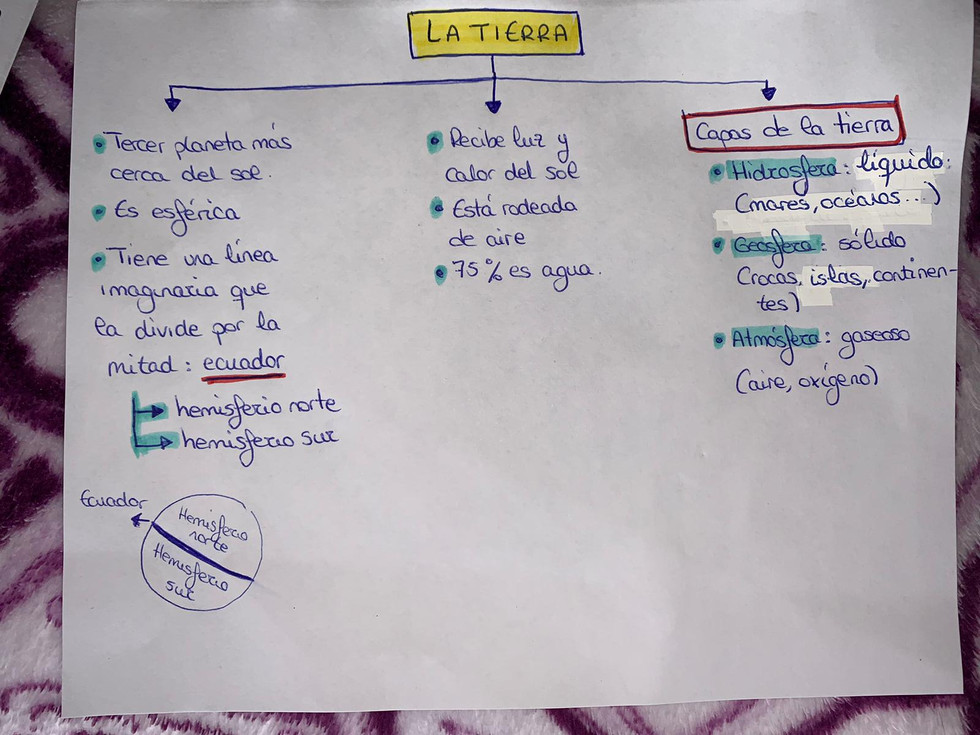 LA TIERRA
• Tercer planeta más
cerca del sol.
• Es esférica
• Tiene una línea
imaginaria que
la divide por la
mitad: ecuador
hemisferio norte
hemisferio sur
Ecuador
Hemisferio
norte
Hemisferio
sur
• Recibe luz y
calor del sol
• Está rodeada
de aire
• 75% es agua.
Capas de la tierra
• Hidrosfera: líquido:
(mares, océanos...)
• Geosfera: sólido
(rocas, islas, continen-
tes)
• Atmósfera: gaseoso
(aire, oxígeno)